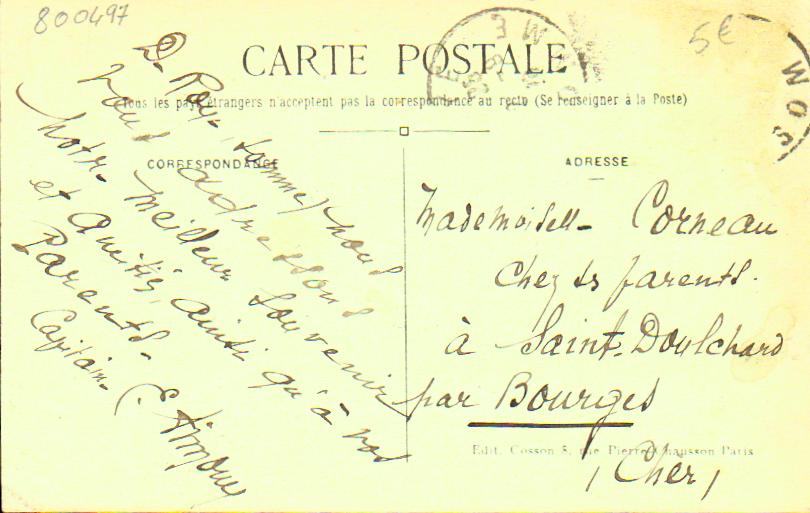 800497
5€
CARTE POSTALE
Tous les pays étrangers n'acceptent pas la correspondance au recto (Se renseigner à la Poste)
CORRESPONDANCE
De Roye, (somme) nous
vous adressons
notre meilleur souvenir
et amitiés, ainsi qu'à vos
Parents.
Capitaine
ADRESSE
Mademoiselle Corneau
chez ses parents.
à Saint-Doulchard
par Bourges
(Cher)
Edit. Cosson 8, rue Pierre Chausson Paris
SOM